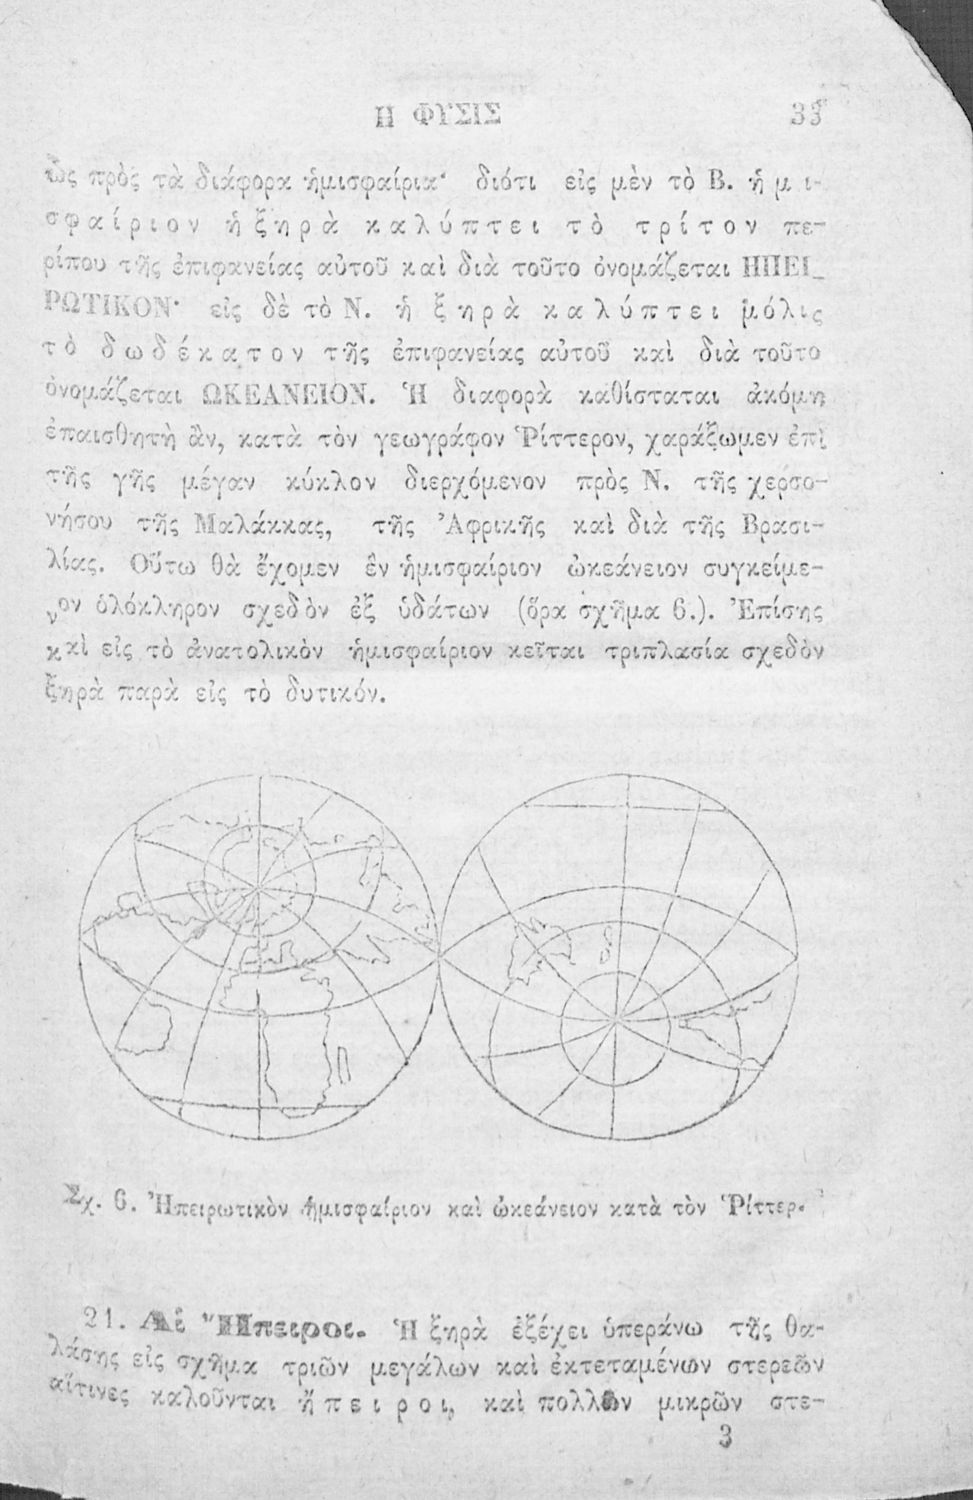 Η ΦΥΣΙΣ 33
ὡς πρὸς τὰ διάφορα ἡμισφαίρια· διότι εἰς μὲν τὸ Β. ἡ μ ι-
σ φ α ί ρ ι ο ν ἡ ξ η ρ ὰ κ α λ ύ π τ ε ι τ ὸ τ ρ ί τ ο ν πε-
ρίπου τῆς ἐπιφανείας αὐτοῦ καὶ διὰ τοῦτο ὀνομάζεται ΗΠΕΙ_
ΡΩΤΙΚΟΝ· εἰς δὲ τὸ Ν. ἡ ξ η ρ ὰ κ α λ ύ π τ ε ι μόλις
τ ὸ δ ω δ έ κ α τ ο ν τῆς ἐπιφανείας αὐτοῦ καὶ διὰ τοῦτο
ὀνομάζεται ΩΚΕΑΝΕΙΟΝ. Ἡ διαφορὰ καθίσταται ἀκόμη
ἐπαισθητὴ ἂν, κατὰ τὸν γεωγράφον Ῥίττερον, χαράξωμεν ἐπὶ
τῆς γῆς μέγαν κύκλον διερχόμενον πρὸς Ν. τῆς χερσο-
νήσου τῆς Μαλάκκας, τῆς Ἀφρικῆς καὶ διὰ τῆς Βρασι-
λίας. Οὕτω θὰ ἔχομεν ἓν ἡμισφαίριον ὠκεάνειον συγκείμε-
νον ὁλόκληρον σχεδὸν ἐξ ὑδάτων (ὅρα σχῆμα 6.). Ἐπίσης
καὶ εἰς τὸ ἀνατολικὸν ἡμισφαίριον κεῖται τριπλασία σχεδὸν
ξηρὰ παρὰ εἰς τὸ δυτικόν.
Σχ. 6. Ἠπειρωτικὸν ἡμισφαίριον καὶ ὠκεάνειον κατὰ τὸν Ῥίττερ.
21. Αἱ Ἤπειροι. Ἡ ξηρὰ ἐξέχει ὑπεράνω τῆς θα-
λάσης εἰς σχῆμα τριῶν μεγάλων καὶ ἐκτεταμένων στερεῶν
αἵτινες καλοῦνται ἤ π ε ι ρ ο ι, καὶ πολλῶν μικρῶν στε-
3